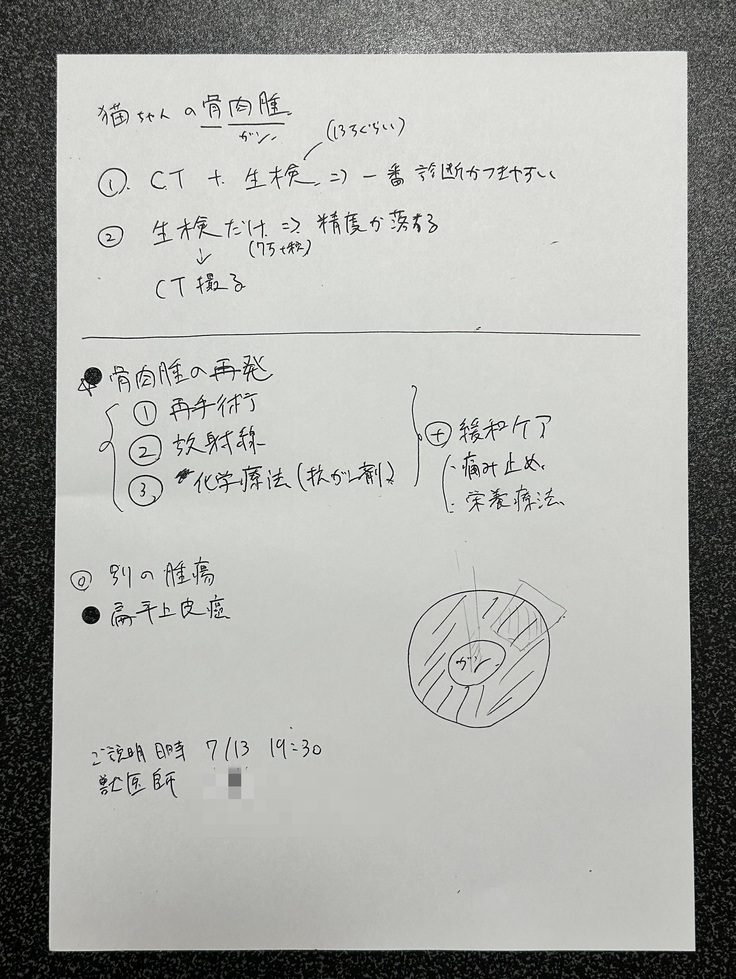 猫ちゃんの骨肉腫
ガン
(13万ぐらい)
①. CT + 生検 ⇒ 一番診断がつきやすい
② 生検だけ ⇒ 精度が落ちる
(7万+税)
↓
CT撮る
● 骨肉腫の再発
① 再手術
② 放射線
③ 化学療法(抗がん剤)
⊕ 緩和ケア
・痛み止め
・栄養療法
◎ 別の腫瘍
● 扁平上皮癌
ガン
ご説明日時 7/13 19:30
獣医師